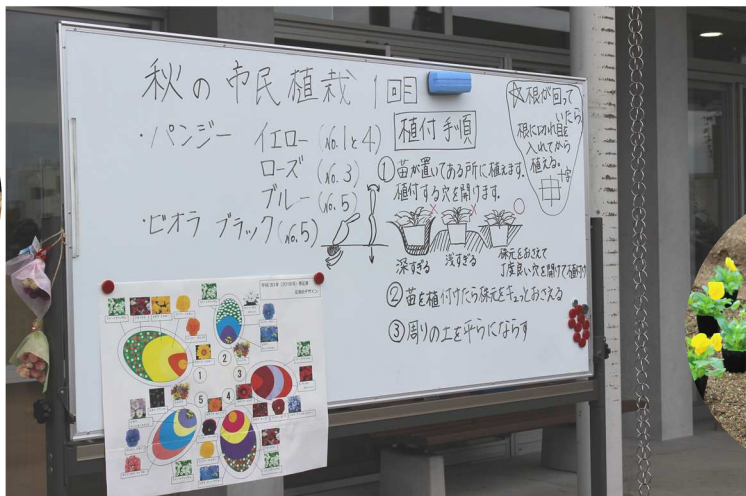 秋の市民植栽 1回目
・パンジー イエロー(No.1と4)
ローズ(No.3)
ブルー(No.5)
・ビオラ ブラック(No.5)
植付手順
①苗が置いてある所に植えます。
植付する穴を開けます。
深すぎる
浅すぎる
株元をおさえて
丁度良い穴を開けて植付け
②苗を植付けたら株元をギュッとおさえる
③周りの土を平らにならす
☆根が回って
いたら
根に切れ目を
入れてから
植える。
十字
1
2
3
4
5